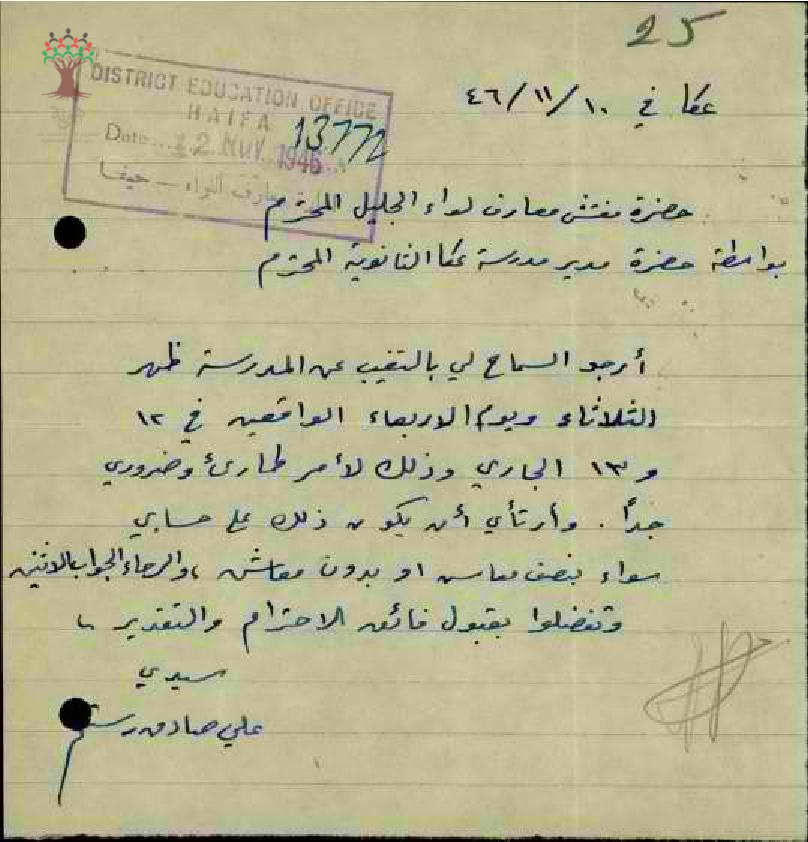 25
عكا في ١٠/١١/٤٦
DISTRICT EDUCATION OFFICE
HAIFA
Date 12 NOV 1946
13772
معارف اللواء — حيفا
حضرة مفتش معارف لواء الجليل المحترم
بواسطة حضرة مدير مدرسة عكا الثانوية المحترم
أرجو السماح لي بالتغيب عن المدرسة ظهر
الثلاثاء ويوم الاربعاء الواقعين في ١٢
و ١٣ الجاري وذلك لأمر طارئ وضروري
جداً. وأرتأي أن يكون ذلك على حسابي
سواء بنصف معاش او بدون معاش، والرجاء الجواب بالاثنين
وتفضلوا بقبول فائق الاحترام والتقدير
سيدي
علي صادق رستم